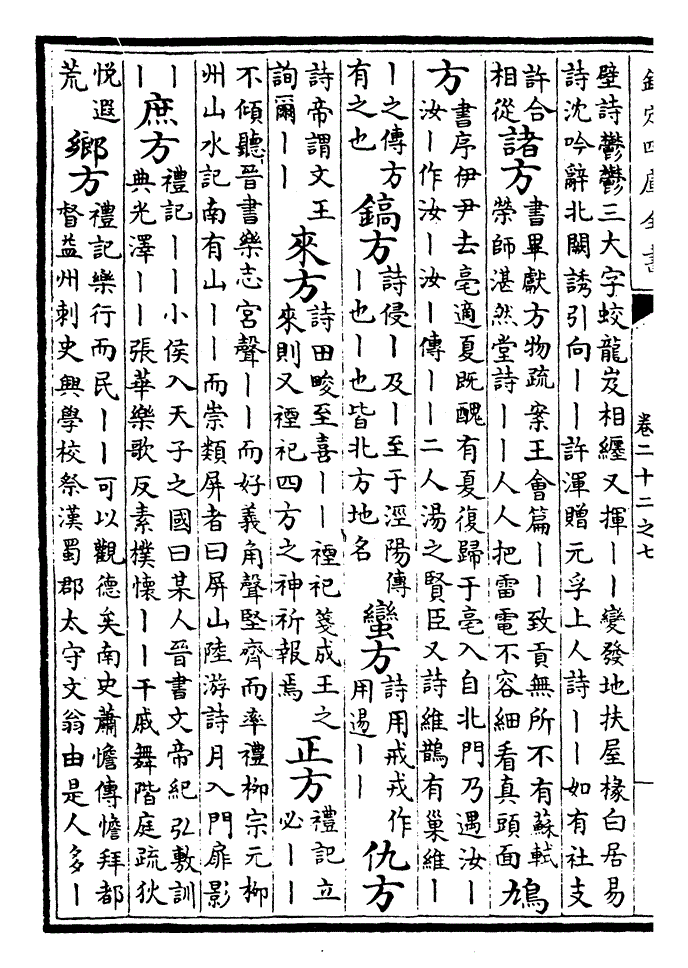 欽定四庫全書
卷二十二之七
壁詩鬱鬱三大字蛟龍岌相纏又揮丨丨變發地扶屋椽白居易
詩沈吟辭北闕誘引向丨丨許渾贈元孚上人詩丨丨如有社支
許合
相從
諸方
書畢獻方物疏案王會篇丨丨致貢無所不有蘇軾
榮師湛然堂詩丨丨人人把雷電不容細看真頭面
鳩
方
書序伊尹去亳適夏既醜有夏復歸于亳入自北門乃遇汝丨
汝丨作汝丨汝丨傳丨丨二人湯之賢臣又詩維鵲有巢維丨
丨之傳方
有之也
鎬方
詩侵丨及丨至于涇陽傳
丨也丨也皆北方地名
蠻方
詩用戒戎作
用逷丨丨
仇方
詩帝謂文王
詢爾丨丨
來方
詩田畯至喜丨丨禋祀箋成王之
來則又禋祀四方之神祈報焉
正方
禮記立
必丨丨
不傾聽晉書樂志宮聲丨丨而好義角聲堅齊而率禮柳宗元柳
州山水記南有山丨丨而崇類屏者曰屏山陸游詩月入門扉影
丨
丨
庶方
禮記丨丨小侯入天子之國曰某人晉書文帝紀弘敷訓
典光澤丨丨張華樂歌反素樸懷丨丨干戚舞階庭疏狄
悅遐
荒
鄉方
禮記樂行而民丨丨可以觀德矣南史蕭憺傳憺拜都
督益州刺史興學校祭漢蜀郡太守文翁由是人多丨